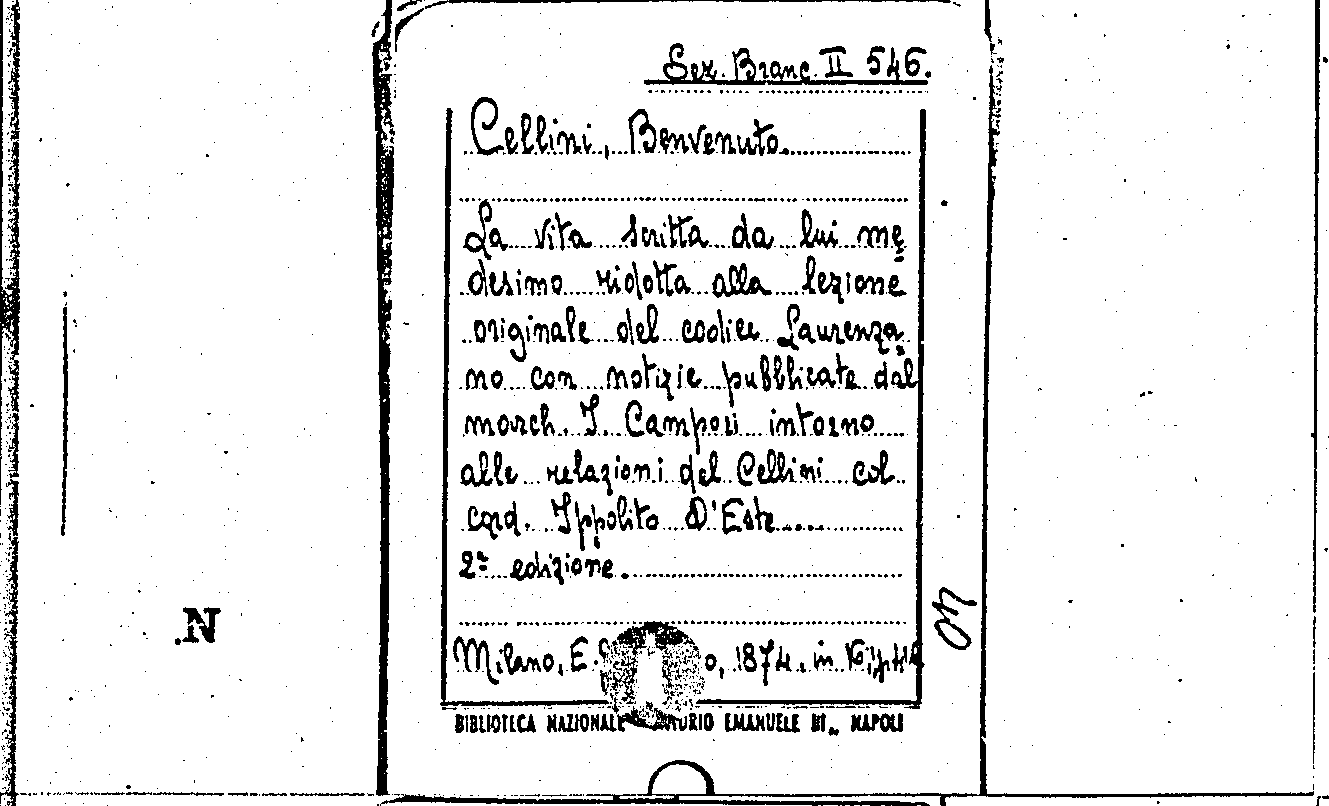 Sez. Branc. II 546.
Cellini, Benvenuto.
La vita scritta da lui me
desimo ridotta alla lezione
originale del codice Laurenza
no con notizie pubblicate dal
march. G. Campori intorno
alle relazioni del Cellini col
card. Ippolito D'Este.....
2ª edizione.
Milano, E. o, 1874. in 16°
BIBLIOTECA NAZIONALE EMANUELE III., NAPOLI
40
N.